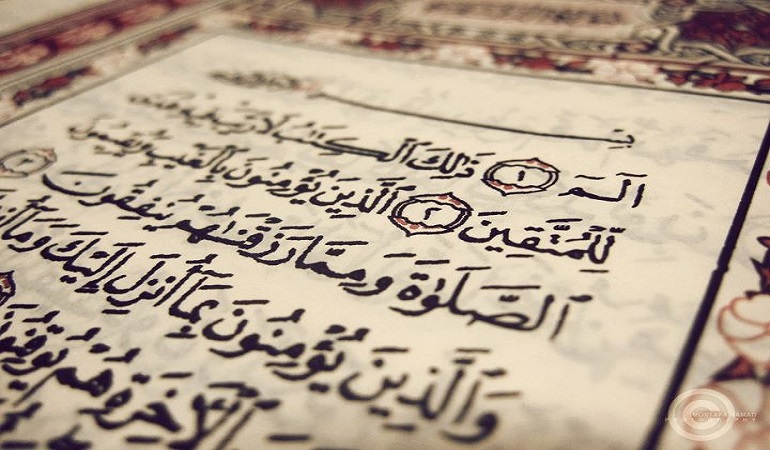 بِسْمِ
الٓمٓ ١ ذَٰلِكَ ٱلْكِتَٰبُ لَا رَيْبَ فِيهِ هُدًى
لِّلْمُتَّقِينَ ٢ ٱلَّذِينَ يُؤْمِنُونَ بِٱلْغَيْبِ وَيُقِيمُونَ
ٱلصَّلَوٰةَ وَمِمَّا رَزَقْنَٰهُمْ يُنفِقُونَ ٣
وَٱلَّذِينَ يُؤْمِنُونَ بِمَآ أُنزِلَ إِلَيْكَ وَمَآ أُنزِلَ
ٱلْأَخِرَةِ هُمْ يُوقِنُونَ
MOSTAFA HAMAD
PHOTOGRAPHY